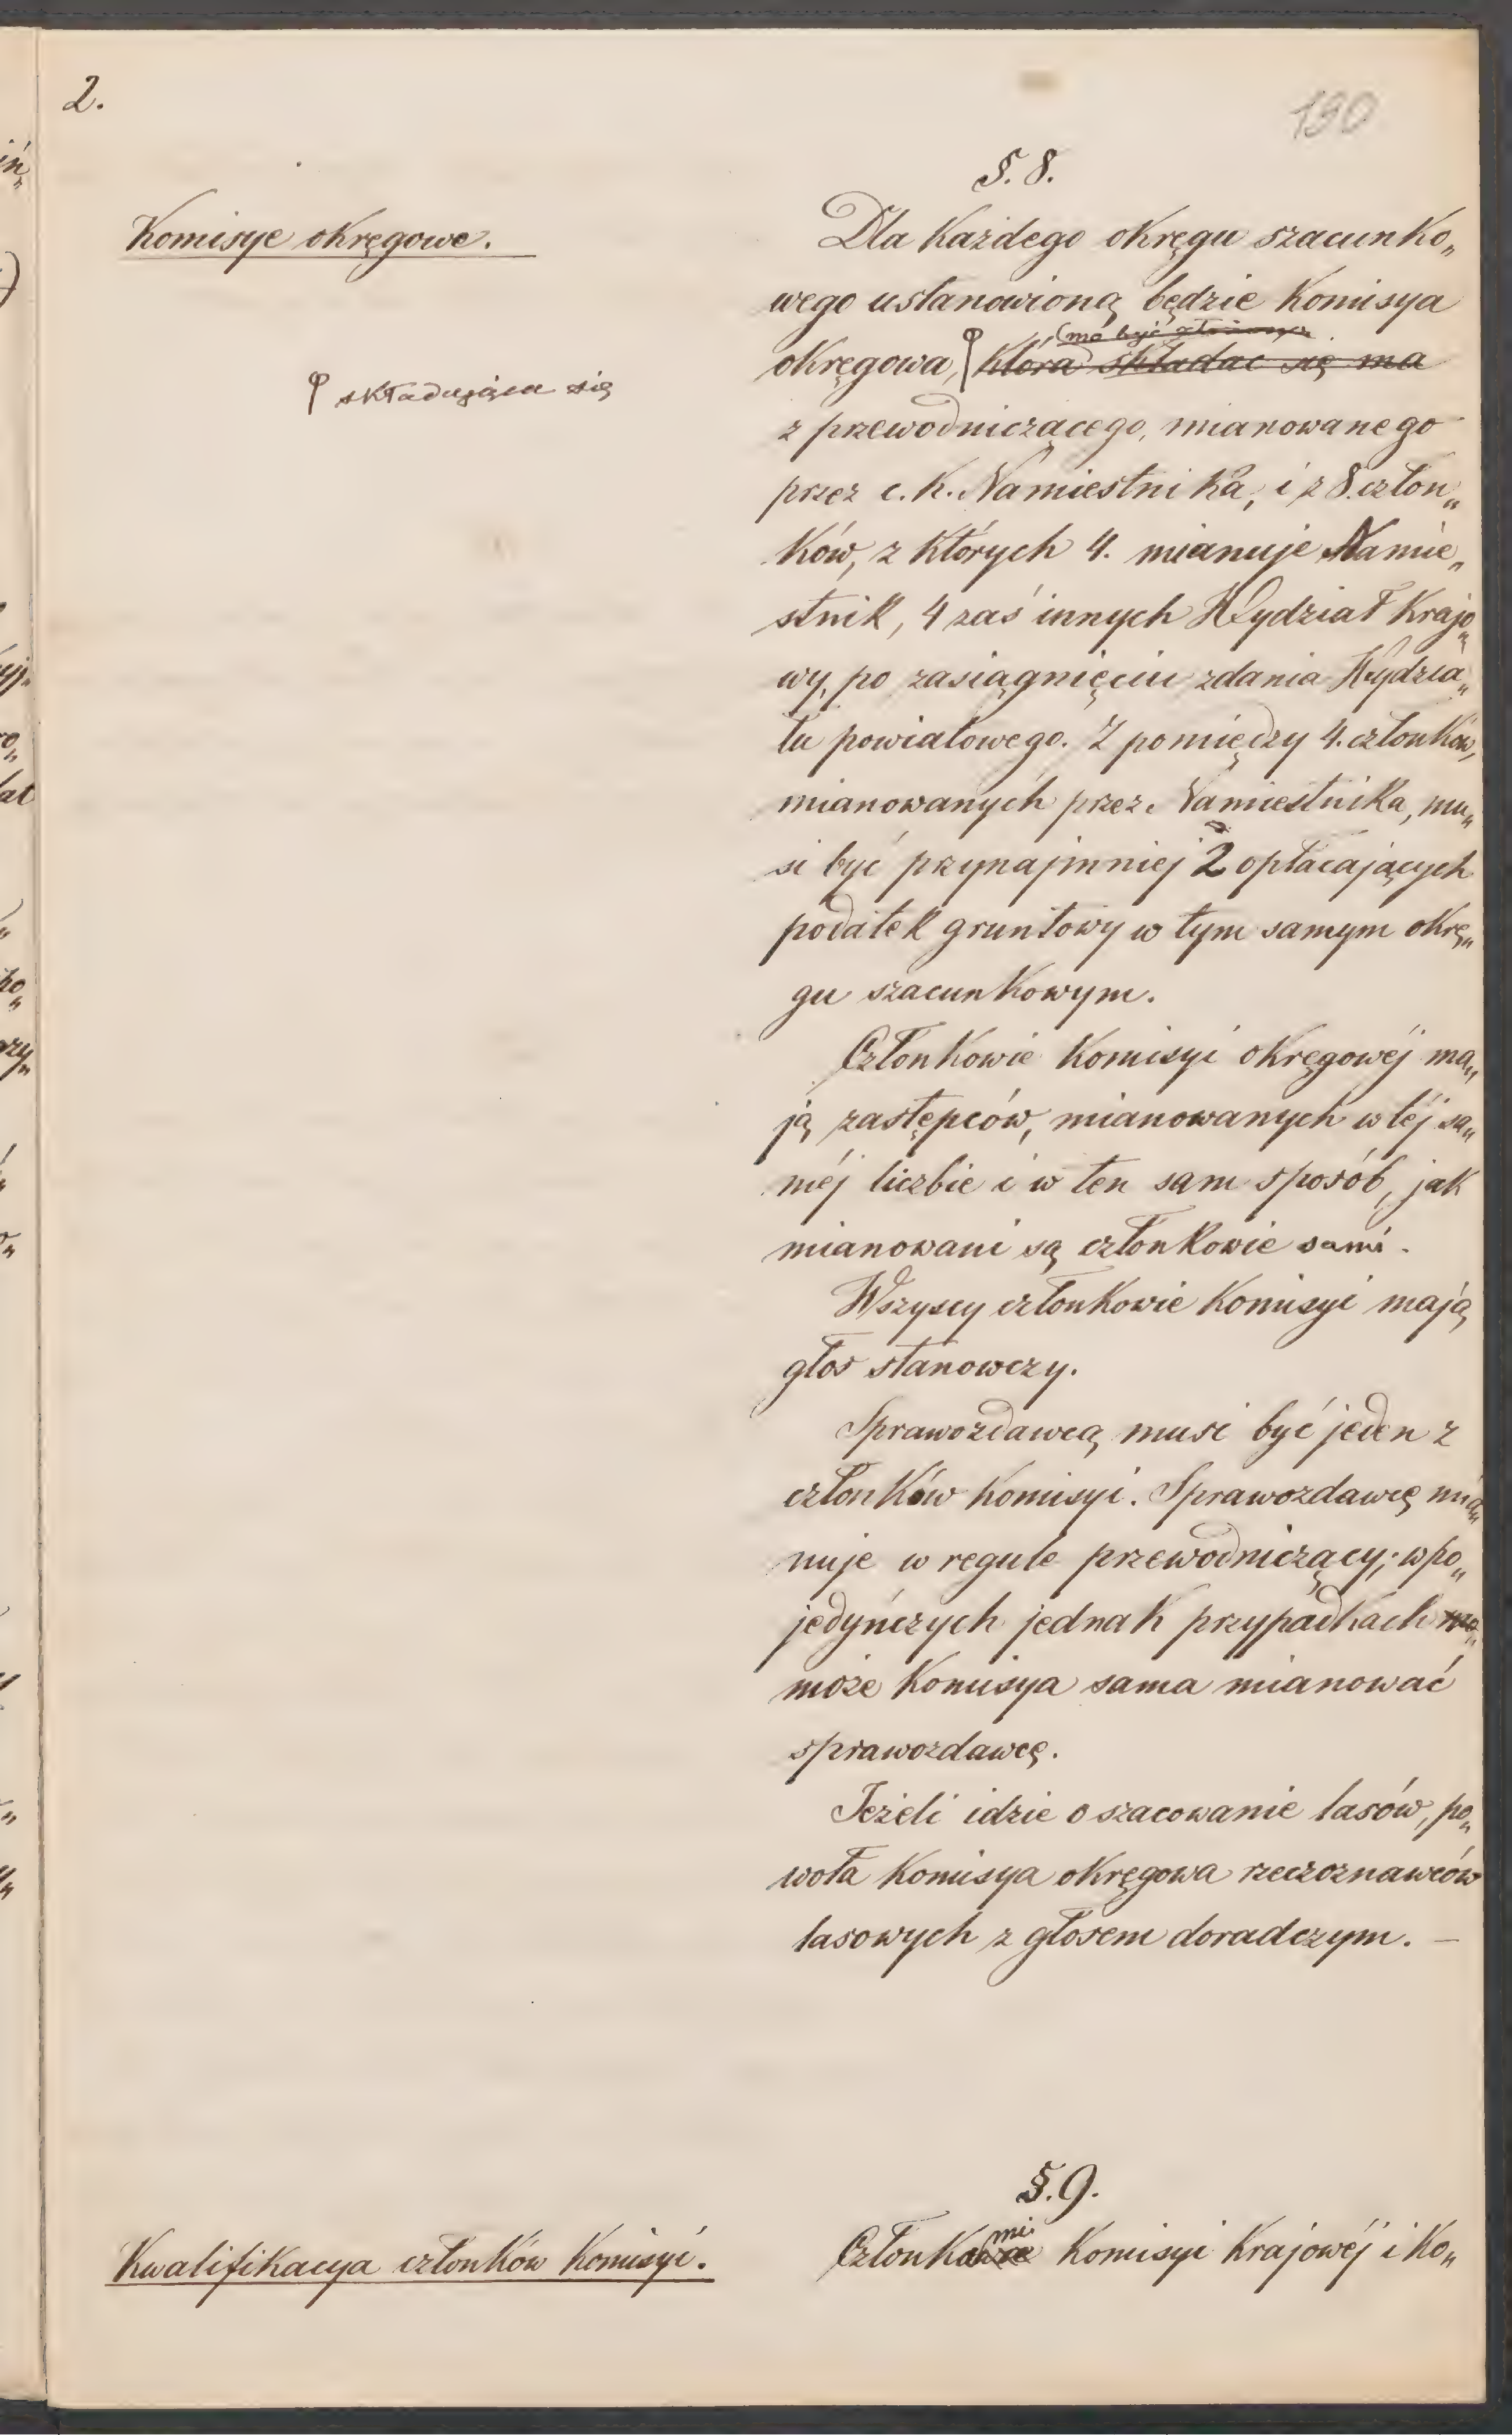 2.
190
§. 8.
Komisye okręgowe.
Dla każdego okręgu szacunko„
wego ustanowioną będzie Komisya
(ma być złożoną
okręgowa, która składać się ma
składająca się
z przewodniczącego, mianowanego
przez c. k. Namiestnika, i z 8. człon„
ków, z których 4. mianuje Namie„
stnik, 4 zaś innych Wydział Krajo„
wy, po zasiągnięciu zdania Wydzia„
łu powiatowego. Z pomiędzy 4. członków,
mianowanych przez Namiestnika, mu„
si być przynajmniej 2 opłacających
podatek gruntowy w tym samym okrę„
gu szacunkowym.
Członkowie Komisyi okręgowéj ma„
ją zastępców, mianowanych w téj sa„
méj liczbie i w ten sam sposób, jak
mianowani są członkowie sami.
Wszyscy członkowie Komisyi mają
głos stanowczy.
Sprawozdawcą musi być jeden z
członków Komisyi. Sprawozdawcę mia„
nuje w regule przewodniczący; w po„
jedyńczych jednak przypadkach
może Komisya sama mianować
sprawozdawcę.
Jeżeli idzie o szacowanie lasów, po„
woła Komisya okręgowa rzeczoznawców
lasowych z głosem doradczym. —
§. 9.
Kwalifikacya członków Komisyi.
Członkami Komisyi Krajowéj i Ko„